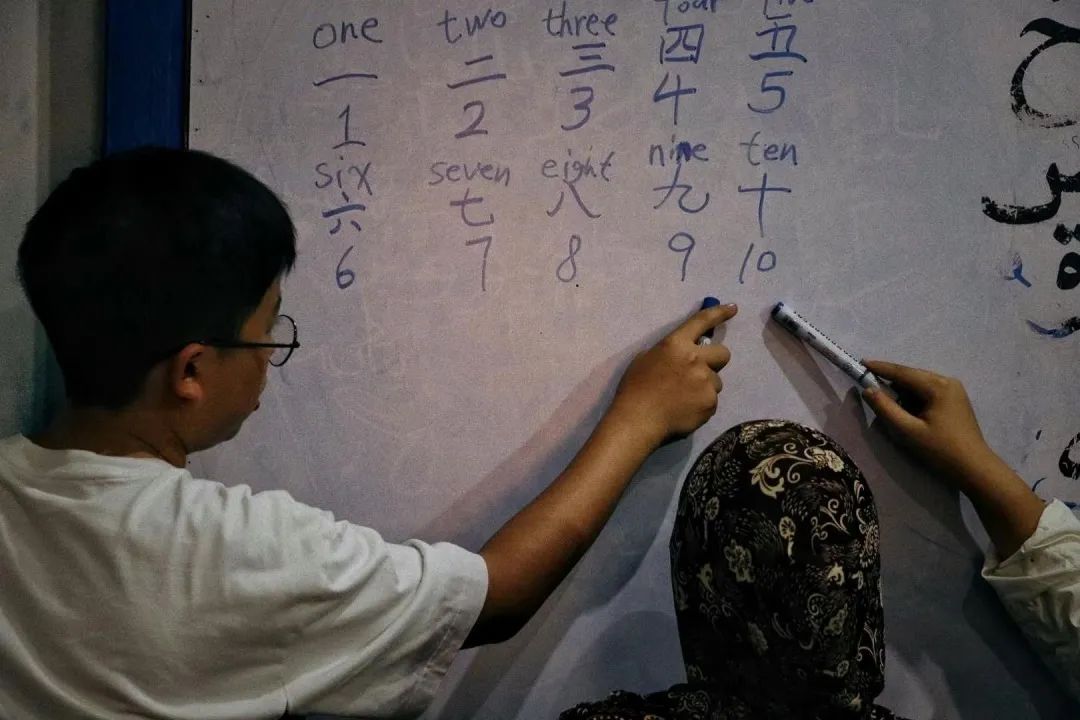 one two three four five
一 二 三 四 五
1 2 3 4 5
six seven eight nine ten
六 七 八 九 十
6 7 8 9 10